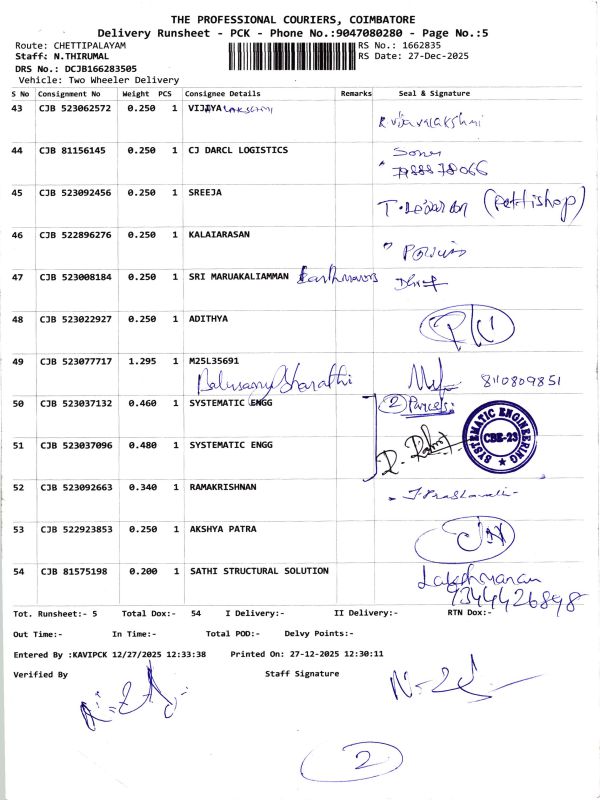 THE PROFESSIONAL COURIERS, COIMBATORE
Delivery Runsheet - PCK - Phone No.:9047080280 - Page No.:5
Route: CHETTIPALAYAM RS No.: 1662835
Staff: N.THIRUMAL RS Date: 27-Dec-2025
DRS No.: DCJB166283505
Vehicle: Two Wheeler Delivery
S No Consignment No Weight PCS Consignee Details Remarks Seal & Signature
43 CJB 523062572 0.250 1 VIJAYALAKSHMI R. Vijayalakshmi
44 CJB 81156145 0.250 1 CJ DARCL LOGISTICS
45 CJB 523092456 0.250 1 SREEJA (Pettishop)
46 CJB 522896276 0.250 1 KALAIARASAN
47 CJB 523008184 0.250 1 SRI MARUAKALIAMMAN Earthmovers
48 CJB 523022927 0.250 1 ADITHYA
49 CJB 523077717 1.295 1 M25L35691 8110809851
Balusamy Bharathi
50 CJB 523037132 0.460 1 SYSTEMATIC ENGG 2 Parcels
SYSTEMATIC ENGINEERING CBE-23
51 CJB 523037096 0.480 1 SYSTEMATIC ENGG
52 CJB 523092663 0.340 1 RAMAKRISHNAN
53 CJB 522923853 0.250 1 AKSHYA PATRA
54 CJB 81575198 0.200 1 SATHI STRUCTURAL SOLUTION Lakshmanan
9344426898
Tot. Runsheet:- 5 Total Dox:- 54 I Delivery:- II Delivery:- RTN Dox:-
Out Time:- In Time:- Total POD:- Delvy Points:-
Entered By :KAVIPCK 12/27/2025 12:33:38 Printed On: 27-12-2025 12:30:11
Verified By Staff Signature
2